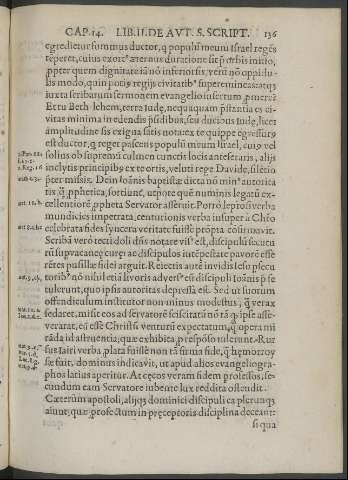 CAP. 14. LIB. II. DE AVT. S. SCRIPT. 136
egredietur summus ductor, q populũ meum Israel regẽs
teperet, cuius exortᵒ æternus duratione sic p orbis initio,
ppter quem dignitate iã nõ inferiorsis, verũ nõ oppidu
lis modo, quin potiᵒ regijs civitatibᵒ supereminẽas: atq;
iuxta scribarum sermonem evangelio insertum, pmẽre
Et tu Beth-lehem, terra Iudę, nequaquam pstantia es ci
vitas minima in edendis psidibus, seu ducibus Iudę, licet
amplitudine sis exigua satis nota: ex te quippe egressurᵒ
est ductor, q reget pascens populũ meum Israel, cuiᵒ vel
solius ob supremũ culmen cunctis locis anteferaris, alijs
inclytis principibᵒ ex te ortis, veluti rege Davide, silẽtio
ptermissis. Dein Ioãnis baptistæ dicta nõ minᵒ autorita
tis, q pphetica, fortiũnt, utpote quẽ numinis legatũ ex-
cellentiorẽ, ppheta Servator asseruit. Porrò leprosi verba
mundicies impetrata, centurionis verba insuper à Chro
celebrata fides syncera veritate fuisse propria cõfirmavit.
Scribã verò tecti doli dñs notare visᵒ est, discipulũ secutu
rũ supvacanee, cur? ac discipulos intẽpestate pavorẽ esse
rẽtes pusillæ fidei arguit. Reiectis autẽ invidis Iesu psecu
toribᵒ nõ nihil etiã livoris adversᵒ eũ discipuli Ioãnis p se
tulerunt, quo ipsis autoritas depressa est. Sed ut suorum
offendiculum institutor non minus modestus, q verax
sedaret, misit eos ad servatorẽ sciscitatũ nõ tã q ipse asse-
verarat, eũ esse Christũ venturũ expectatum, q opera mi
rãda id astruentia, quæ exhibita, prespõso tulerunt. Rur
sus Iairi verba plata fuisse non tã firma fide, q hęmorroy
sæ fuit, dominus indicavit, ut apud alios evangeliogra-
phos latius aperitur. At cęcos veram fidem professos, se-
cundum eam Servatore iubente lux reddita ostendit.
Cæterùm apostoli, alijq; dominici discipuli ea plerunq;
aiunt, quæ profectum in pręceptoris disciplina deceant:
si qua